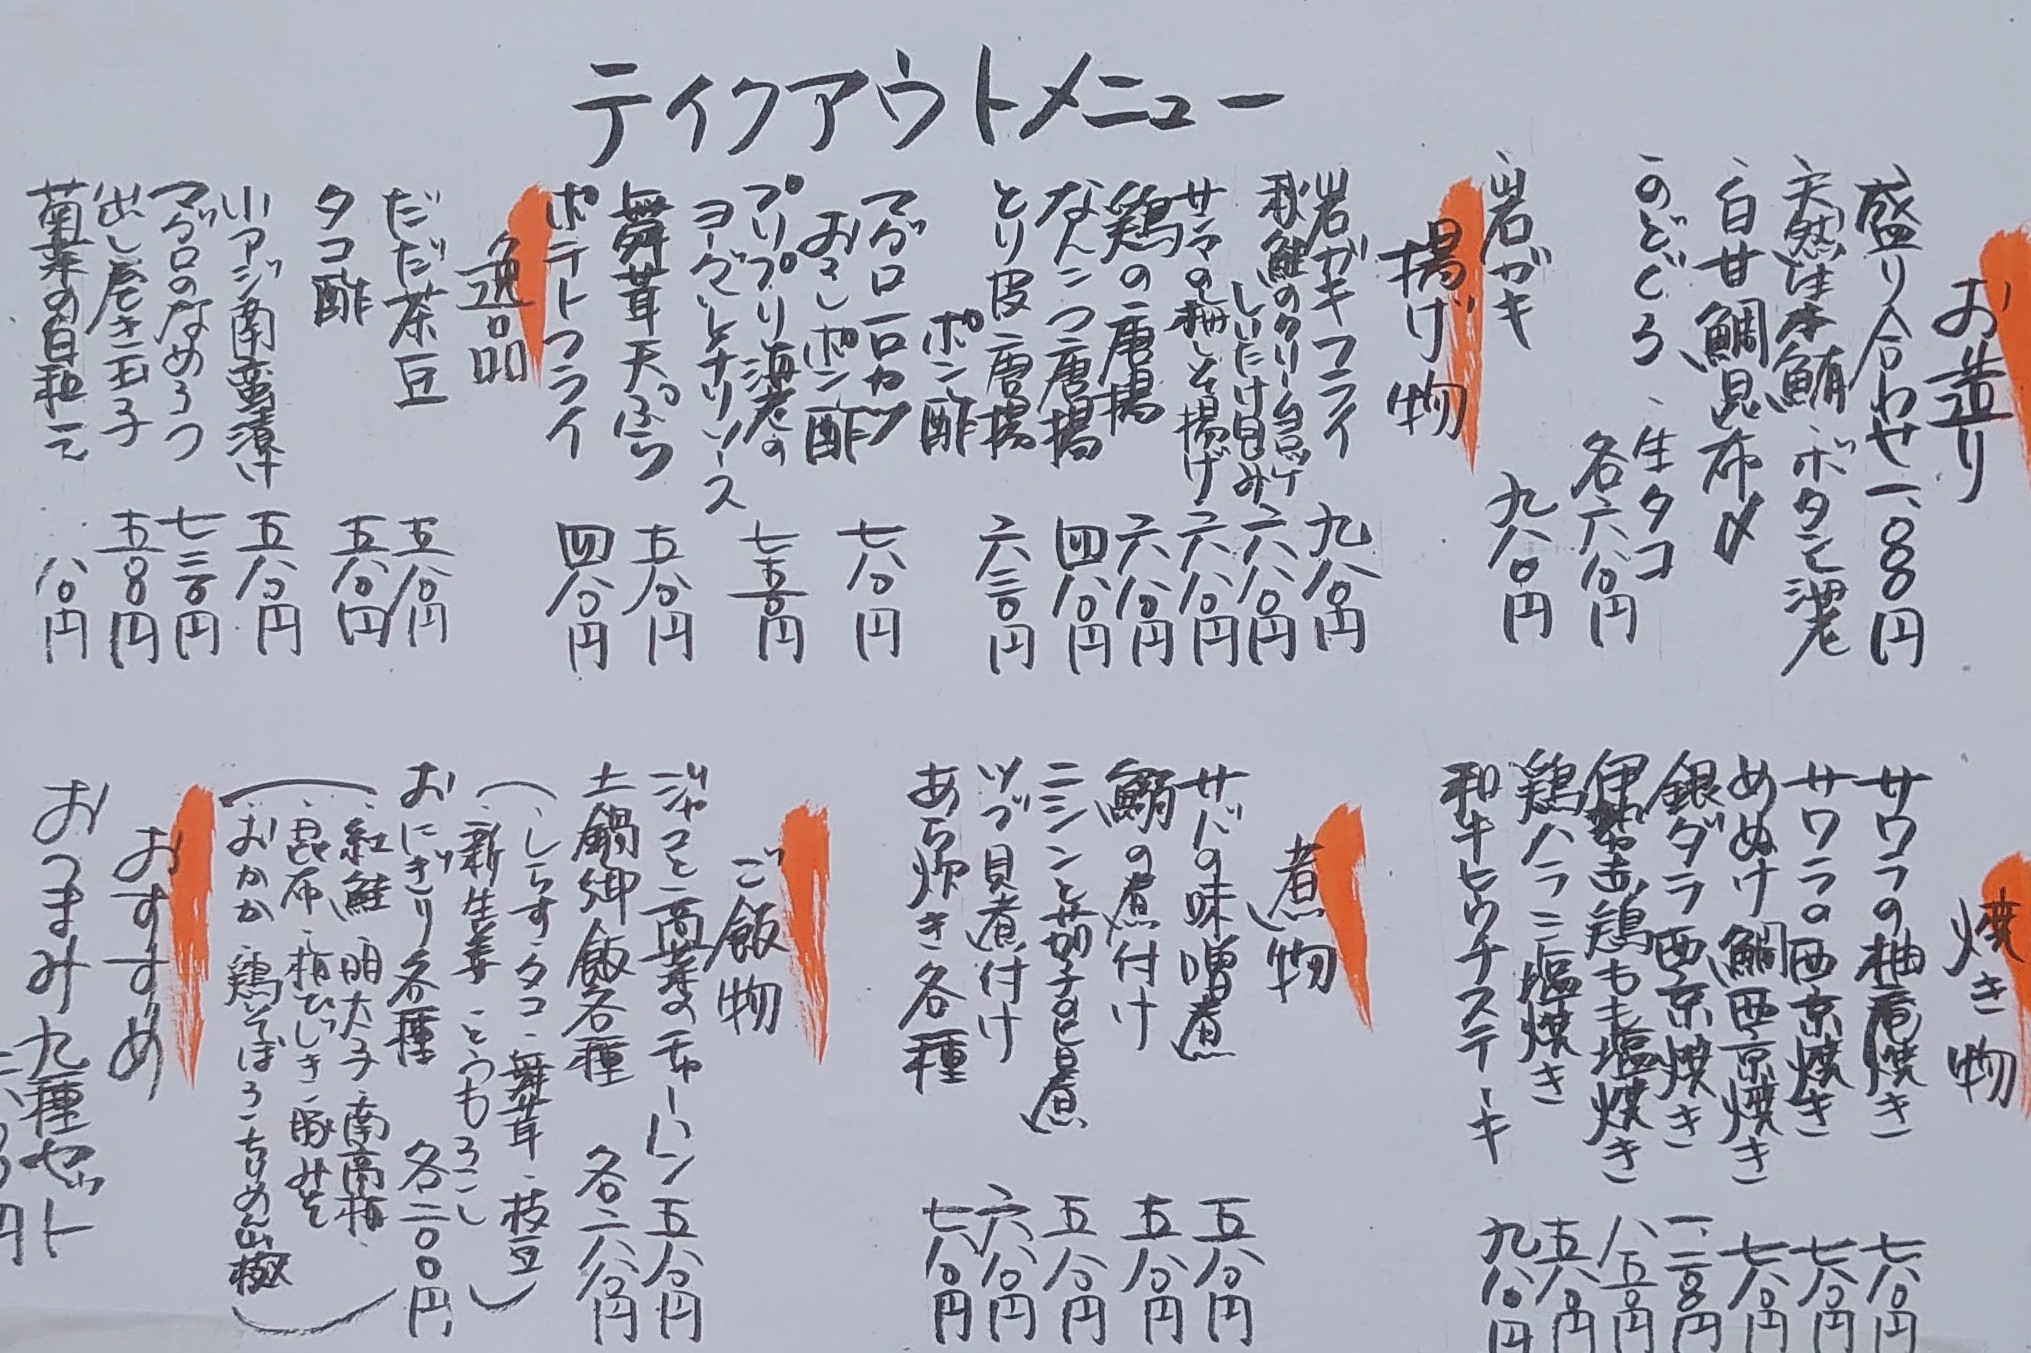 ティクアウトメニュー
お造り
盛り合わせ 一、八〇〇円
天然生本鮪、ボタン海老
、白甘鯛昆布〆
、のどぐろ、生タコ
各六八〇円
、岩ガキ 九八〇円
揚げ物
岩ガキフライ 九八〇円
秋鮭のクリームコロッケ
しいたけ包み 六八〇円
サンマの梅しそ揚げ 六八〇円
鶏の唐揚 六八〇円
なんこつ唐揚 四八〇円
とり皮唐揚
ポン酢 六三〇円
マグロ一口カツ
おろしポン酢 七八〇円
プリプリ海老の
ヨーグルトチリソース 七五〇円
舞茸天ぷら 五八〇円
ポテトフライ 四八〇円
逸品
だだ茶豆 五八〇円
タコ酢 五八〇円
小アジ南蛮漬け 五八〇円
マグロのなめろう 七三〇円
出し巻き玉子 五五〇円
菊菜の白和え 八〇円
焼き物
サワラの柚庵焼き 七八〇円
サワラの西京焼き 七八〇円
めぬけ鯛西京焼き 七八〇円
銀ダラ西京焼き 一、二八〇円
伊勢赤鶏もも塩焼き 八五〇円
鶏ハラミ塩焼き 五八〇円
和牛ヒウチステーキ 九八〇円
煮物
サバの味噌煮 五八〇円
鰯の煮付け 五八〇円
ニシンと茄子の旨煮 五八〇円
ツブ貝煮付け 六八〇円
あら炊き各種 七八〇円
ご飯物
ジャコと高菜のチャーハン 五八〇円
土鍋御飯各種 各二八〇円
（、しらす、タコ、舞茸、枝豆
、新生姜、とうもろこし）
おにぎり各種 各二〇〇円
（、紅鮭、明太子、南高梅、
、昆布、梅ひじき、豚みそ
、おかか、鶏そぼろ、ちりめん山椒）
おすすめ
おつまみ九種セット